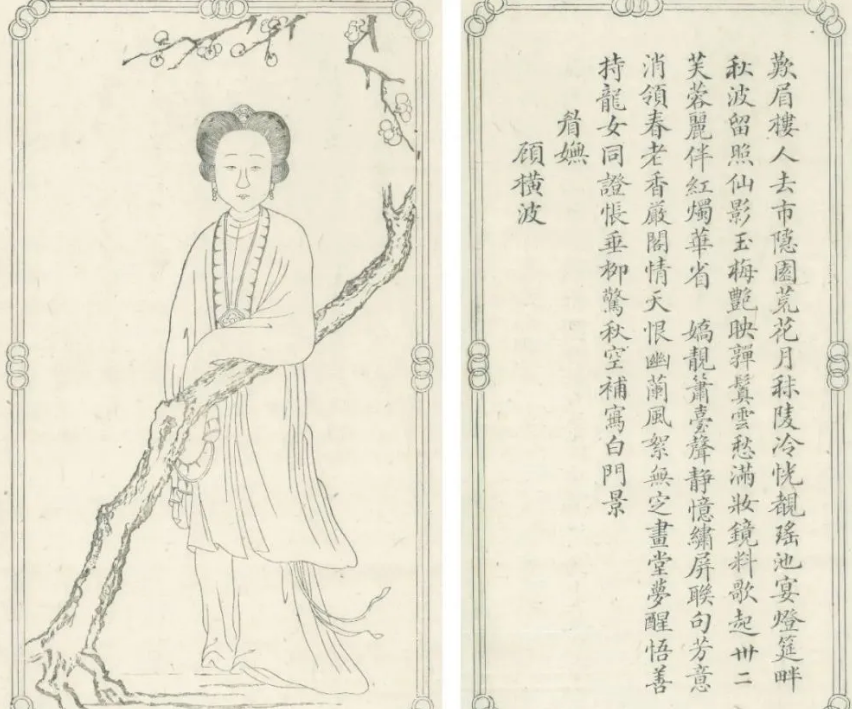 歎眉樓人去市隱園荒花月秣陵冷恍覩瑤池宴燈筵畔
秋波留照仙影玉梅艷映軃鬒雲愁滿妝鏡料歌起卅二
芙蓉麗伴紅燭華省　嬌靚簫臺聲靜憶繡屏聯句芳意
消領春老香嚴閣情天恨幽蘭風絮無定畫堂夢醒悟善
持龍女同證悵垂柳驚秋空補寫白門景
睂嫵
顧橫波